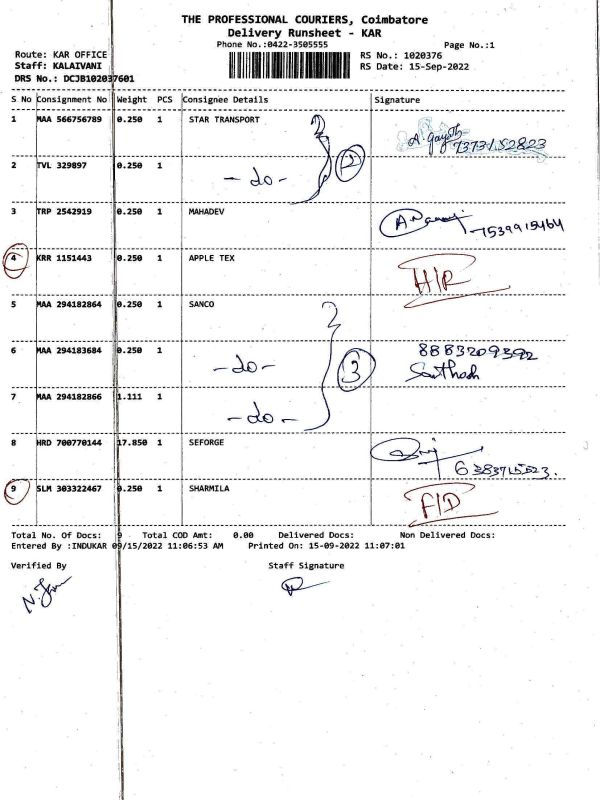 THE PROFESSIONAL COURIERS, Coimbatore
Delivery Runsheet - KAR
Phone No.:0422-3505555 Page No.:1
Route: KAR OFFICE RS No.: 1020376
Staff: KALAIVANI RS Date: 15-Sep-2022
DRS No.: DCJB102037601
S No Consignment No Weight PCS Consignee Details Signature
1 MAA 566756789 0.250 1 STAR TRANSPORT
7373152823
2 TVL 329897 0.250 1 - do - 2
3 TRP 2542919 0.250 1 MAHADEV
7539915464
4 KRR 1151443 0.250 1 APPLE TEX
5 MAA 294182864 0.250 1 SANCO
6 MAA 294183684 0.250 1 -do- 3 8883209392
Santhosh
7 MAA 294182866 1.111 1 -do-
8 HRD 700770144 17.850 1 SEFORGE
6383715523.
9 SLM 303322467 0.250 1 SHARMILA F/D
Total No. Of Docs: 9 Total COD Amt: 0.00 Delivered Docs: Non Delivered Docs:
Entered By :INDUKAR 09/15/2022 11:06:53 AM Printed On: 15-09-2022 11:07:01
Verified By Staff Signature